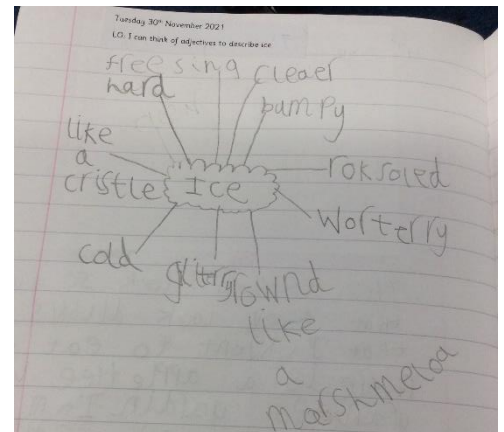 Tuesday 30th November 2021
LO: I can think of adjectives to describe ice
freesing
cleaer
hard
bumpy
like
a
cristle
Ice
roksoled
worterry
cold
glitterry
rownd
like
a
marshmeloa